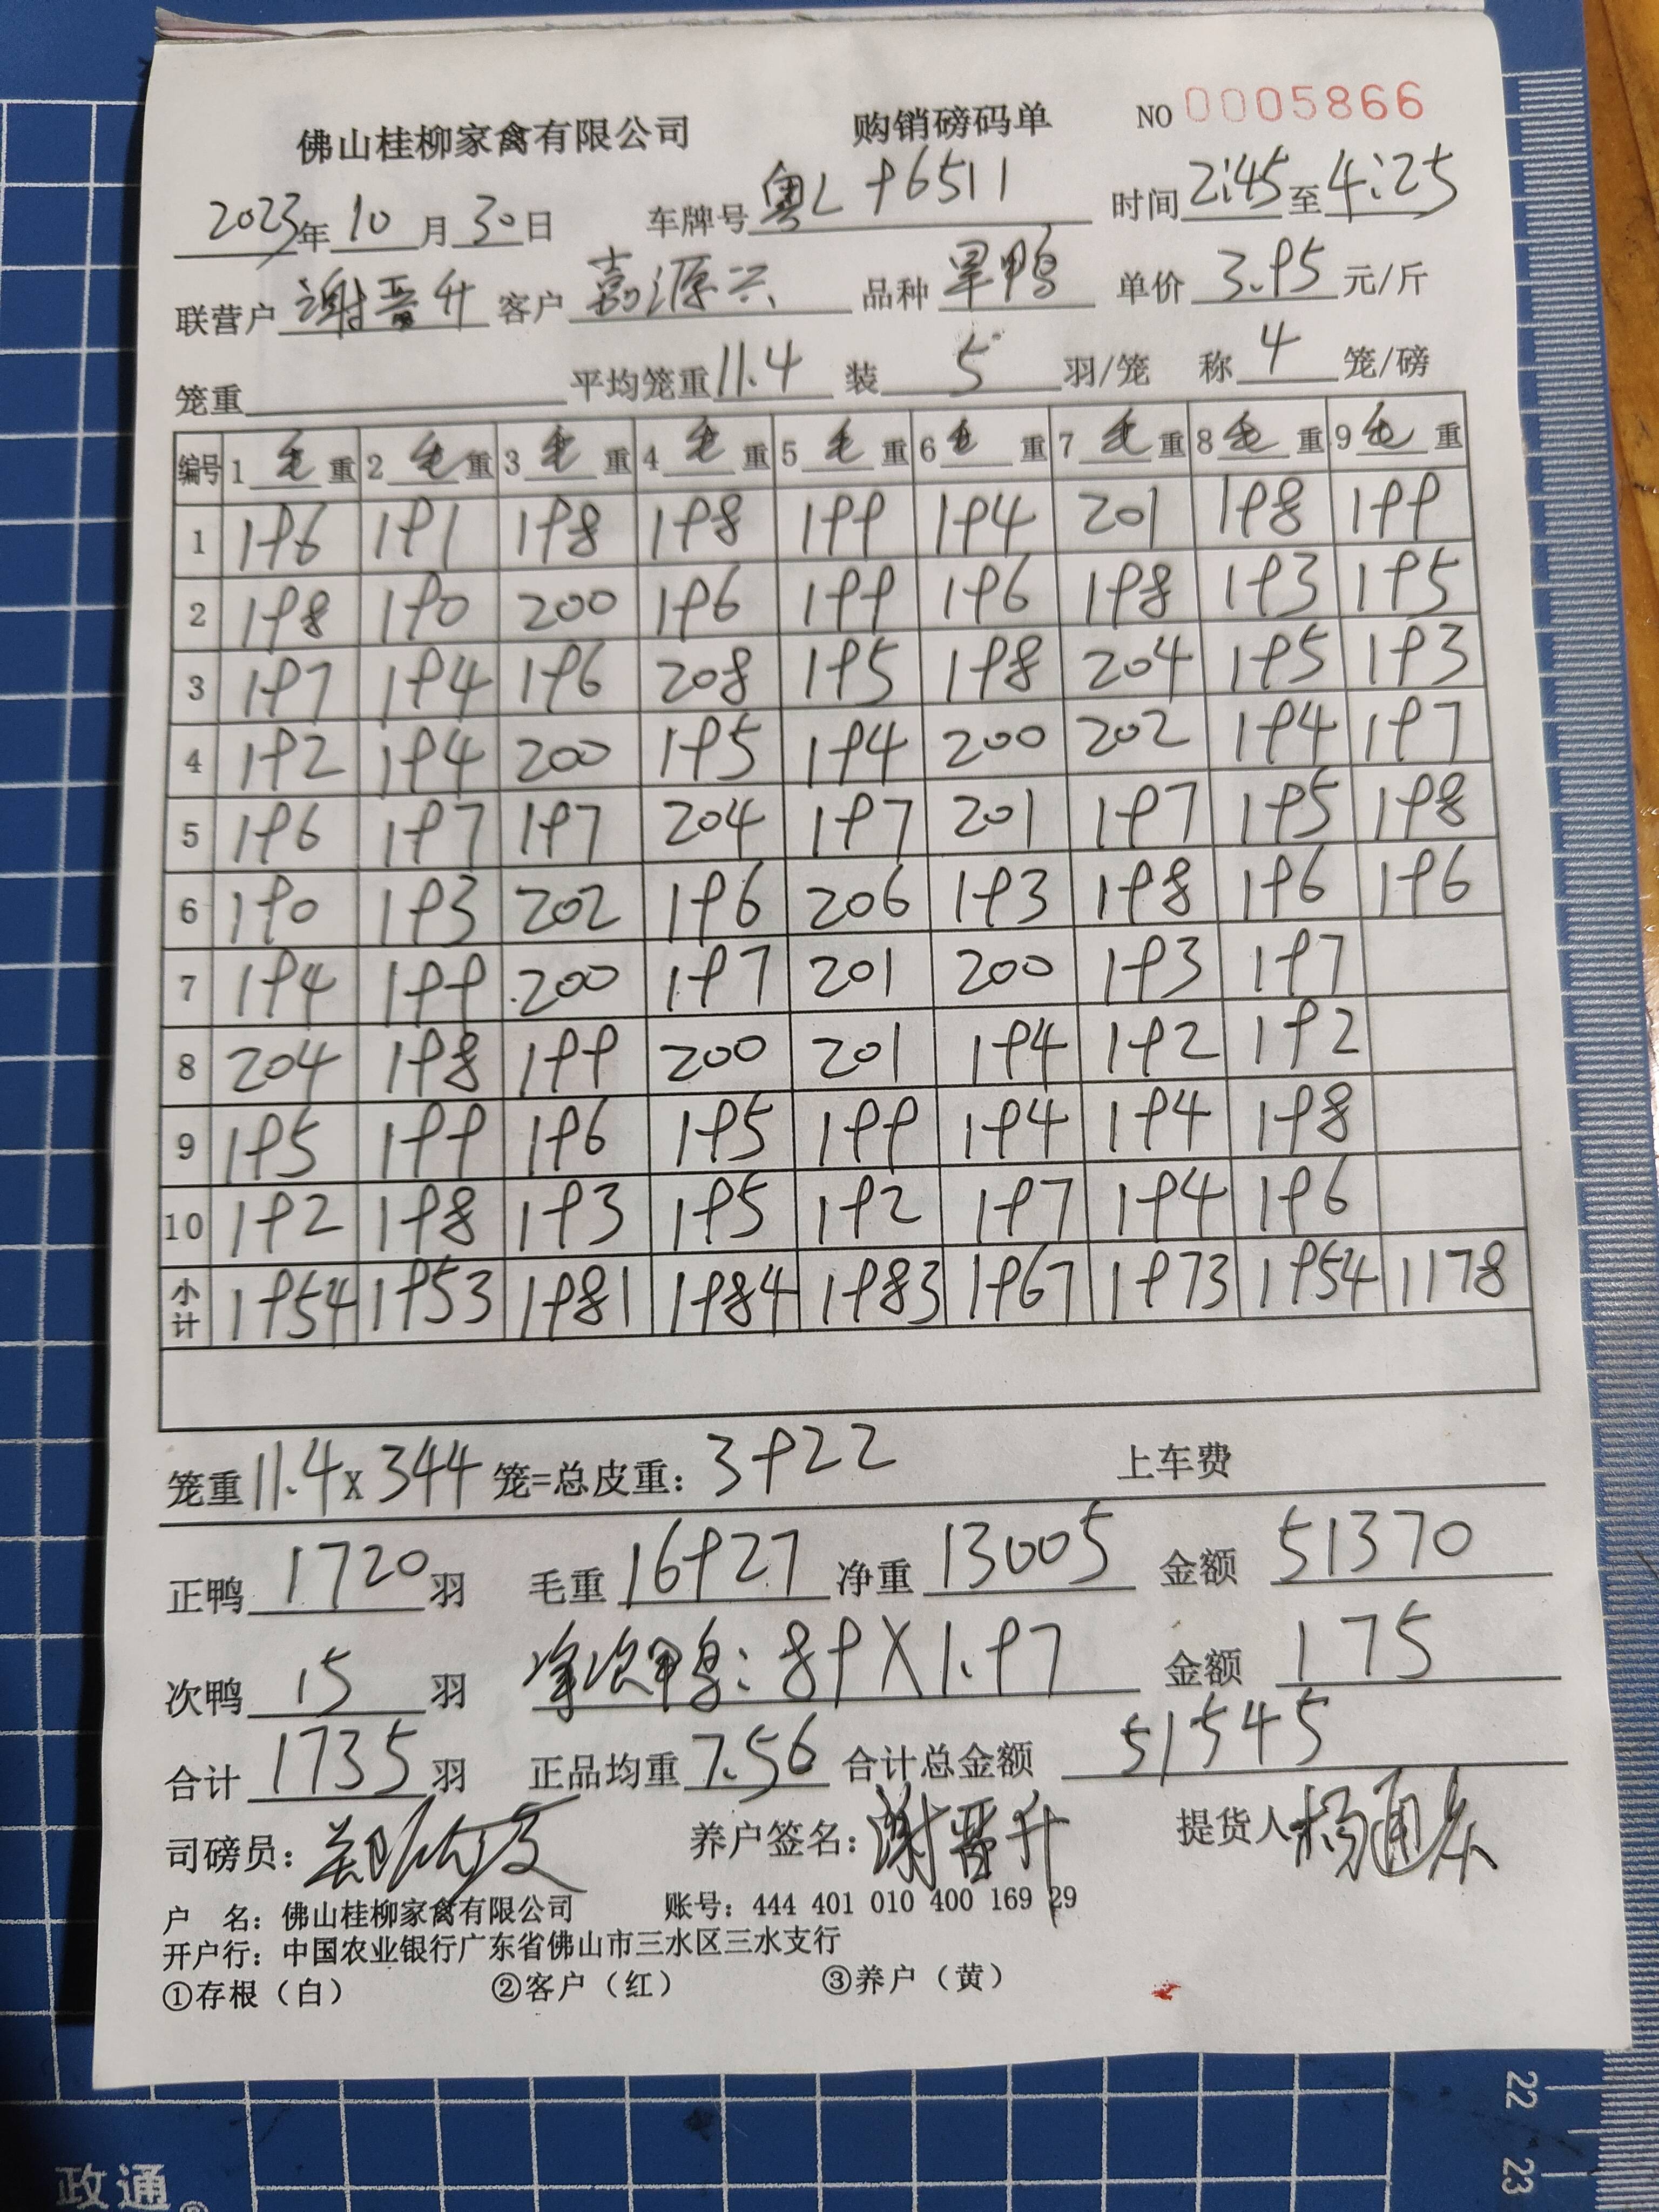 佛山桂柳家禽有限公司 购销磅码单 NO 0005866
2023年10月30日 车牌号粤L 96511 时间2:45至4:25
联营户谢晋升 客户嘉源兴 品种旱鸭 单价3.95元/斤
笼重 平均笼重11.4 装5羽/笼 称4笼/磅
编号 1毛重 2毛重 3毛重 4毛重 5毛重 6毛重 7毛重 8毛重 9毛重
1 196 191 198 198 199 194 201 198 199
2 198 190 200 196 199 196 198 193 195
3 197 194 196 208 195 198 204 195 193
4 192 194 200 195 194 200 202 194 197
5 196 197 197 204 197 201 197 195 198
6 190 193 202 196 206 193 198 196 196
7 194 199 200 197 201 200 193 197
8 204 198 199 200 201 194 192 192
9 195 199 196 195 199 194 194 198
10 192 198 193 195 192 197 194 196
小计 1954 1953 1981 1984 1983 1967 1973 1954 1178
笼重11.4x344笼=总皮重：3922 上车费
正鸭1720羽 毛重16927 净重13005 金额51370
次鸭15羽 净次鸭：89X1.97 金额175
合计1735羽 正品均重7.56 合计总金额51545
司磅员： 养户签名：谢晋升 提货人
户 名：佛山桂柳家禽有限公司 账号：444 401 010 400 169 29
开户行：中国农业银行广东省佛山市三水区三水支行
①存根（白） ②客户（红） ③养户（黄）
22
23
政通®